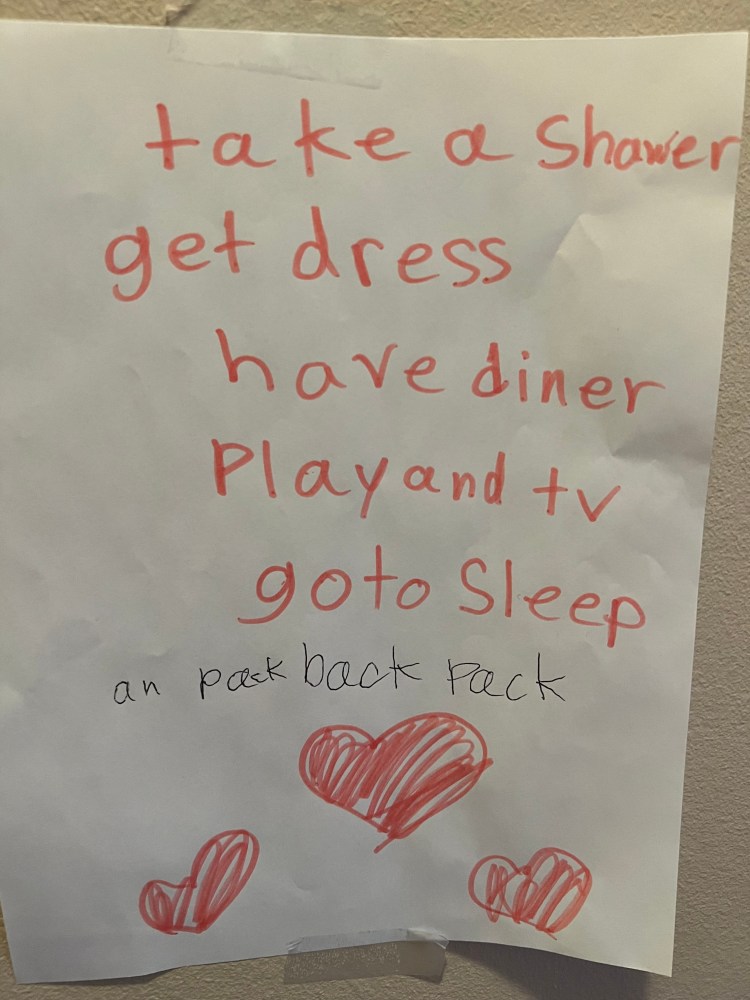 take a Shawer
get dress
have diner
Play and tv
go to Sleep
an pack back pack